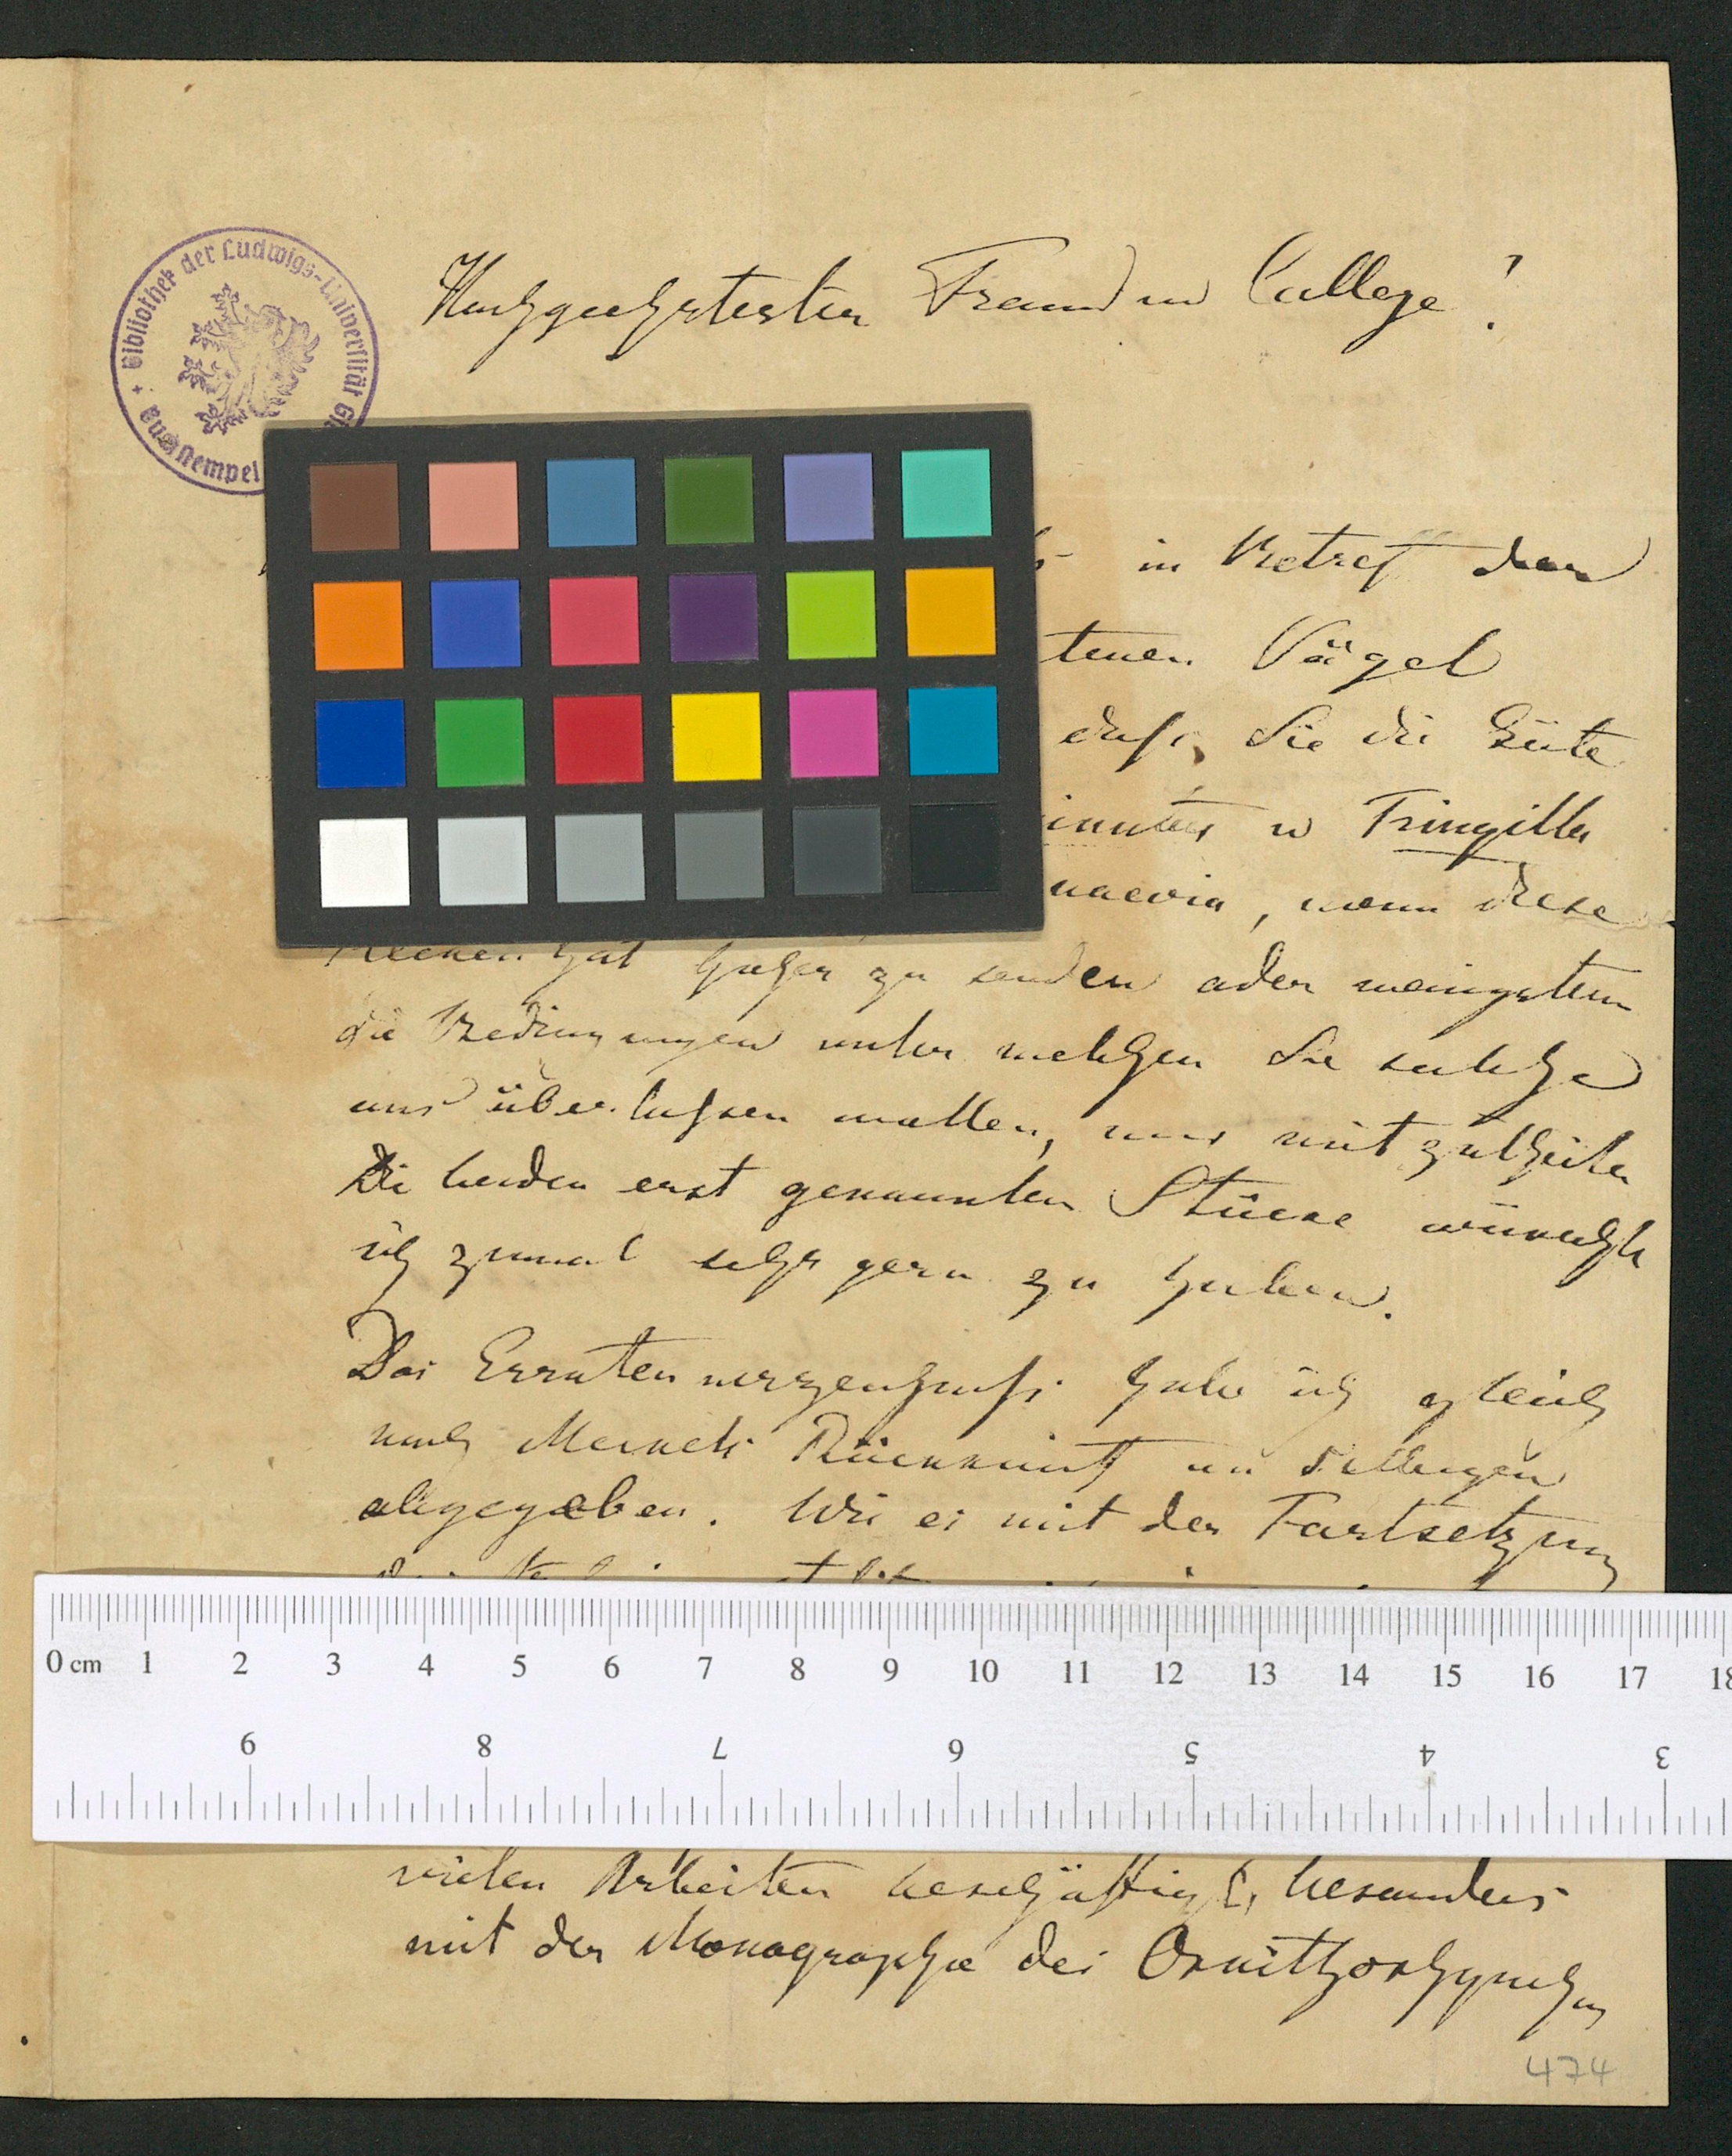 Bibliothek der Ludwigs-Universität
Buchstempel
Hochgeehrtester Freund u College!
in Betreff der
tenen Vögel
daß Sie die Güte
u Fringilla
naevia, wenn diese
hat hieher zu senden oder wenigstens
die Bedingungen unter welchen Sie solche
uns überlassen wollen, uns mitzutheilen
Die beiden erst genannten Stücke wünschte
ich zumal sehr gern zu haben.
Das Erratenverzeichniß habe ich gleich
nach Meckels Rückkunft an
abgegeben. Wie es mit der Fortsetzung
0 cm 1 2 3 4 5 6 7 8 9 10 11 12 13 14 15 16 17 18
9 8 7 6 5 4 3
vielen Arbeiten beschäftigt, besonders
mit der Monographie des Ornithorhynchus
474